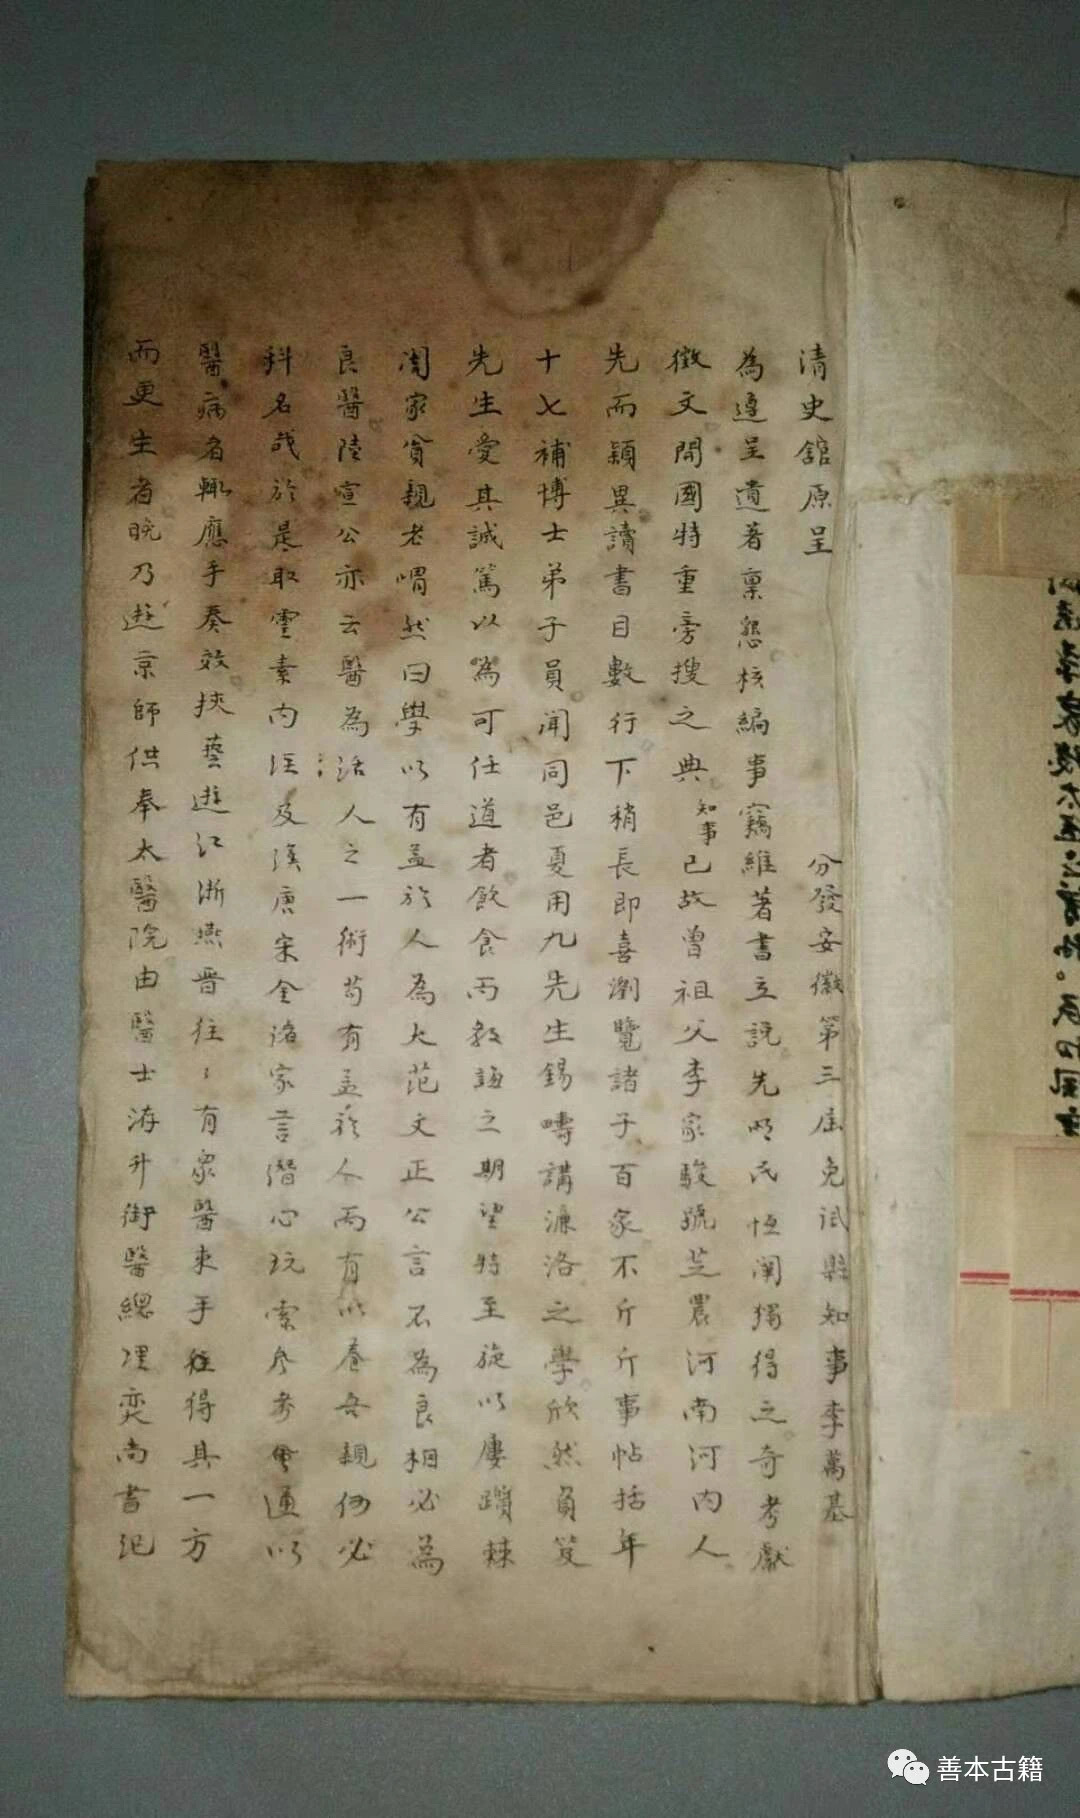 清史館原呈　分發安徽第三屆免試縣知事李萬基
為遵呈遺著稟懇核編事竊維著書立說先所氏恒闡獨得之奇考獻
徵文開國特重旁搜之典知事已故曾祖父李家駿號芝農河南河內人
先而穎異讀書目數行下稍長即喜瀏覽諸子百家不斤斤事帖括年
十七補博士弟子員聞同邑夏用九先生錫疇講濂洛之學欣然負笈
先生愛其誠篤以為可任道者飲食而教誨之期望特至旋以屢躓棘
闈家貧親老喟然曰學以有益於人為大范文正公言不為良相必為
良醫陸宣公亦云醫為活人之一術苟有益於人而有以養吾親何必
科名哉於是取靈素內注及漢唐宋金諸家言潛心玩索參考會通以
醫病者輒應手奏效挾藝遊江浙燕晉往〻有眾醫束手經得其一方
而更生者晚乃遊京師供奉太醫院由醫士洊升御醫總理奕尚書紀
善本古籍